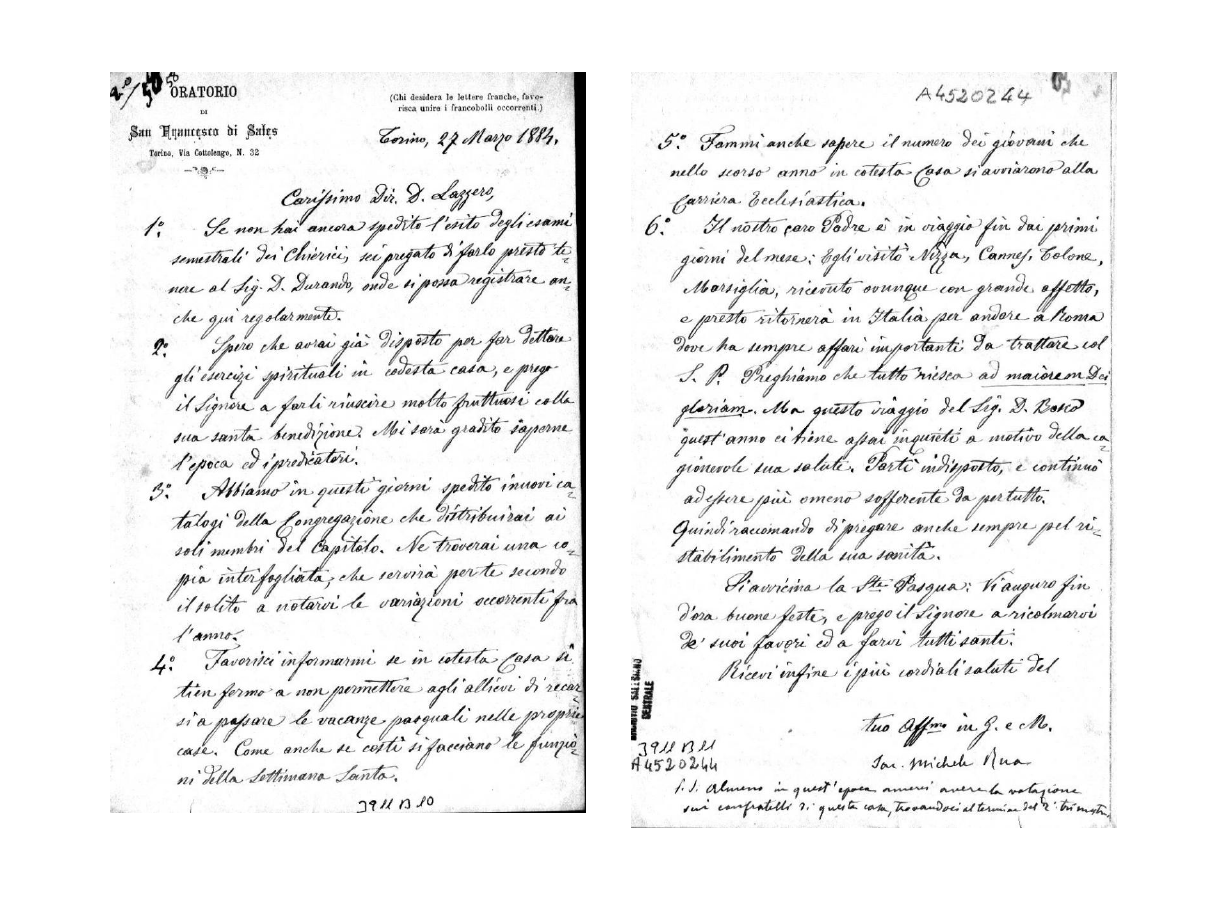 ORATORIO
DI
San Francesco di Sales
Torino, Via Cottolengo, N. 32
(Chi desidera le lettere franche, favo-
risca unire i francobolli occorrenti.)
Torino, 27 Marzo 1884.
Carissimo Dir. D. Lazzero,
1º. Se non hai ancora spedito l'esito degli esami
semestrali dei Chierici, sei pregato di farlo presto te-
nere al Sig. D. Durando, onde si possa registrare an-
che qui regolarmente.
2º. Spero che avrai già disposto per far dettare
gli esercizi spirituali in codesta casa, e prego
il Signore a farli riuscire molto fruttuosi colla
sua santa benedizione. Mi sarà gradito saperne
l'epoca ed i predicatori.
3º. Abbiamo in questi giorni spedito i nuovi ca-
talogi della Congregazione che distribuirai ai
soli membri del Capitolo. Ne troverai una co-
pia interfogliata, che servirà per te secondo
il solito a notarvi le variazioni occorrenti fra
l'anno.
4º. Favorisci informarmi se in cotesta Casa si
tien fermo a non permettere agli allievi di recar-
si a passare le vacanze pasquali nelle proprie
case. Come anche se costì si facciano le funzio-
ni della Settimana Santa.
3911 B 10
A4520244
5º. Fammi anche sapere il numero dei giovani che
nello scorso anno in cotesta Casa si avviarono alla
Carriera Ecclesiastica.
6º. Il nostro caro Padre è in viaggio fin dai primi
giorni del mese: Egli visitò Nizza, Cannes, Tolone,
Marsiglia, ricevuto ovunque con grande affetto,
e presto ritornerà in Italia per andare a Roma
dove ha sempre affari importanti da trattare col
S. P. Preghiamo che tutto riesca ad maiorem Dei
gloriam. Ma questo viaggio del Sig. D. Bosco
quest'anno ci tiene assai inquieti a motivo della ca-
gionevole sua salute. Partì indisposto, e continuò
ad essere più o meno sofferente da per tutto.
Quindi raccomando di pregare anche sempre pel ri-
stabilimento della sua sanità.
Si avvicina la Sta Pasqua: Vi auguro fin
d'ora buone feste, e prego il Signore a ricolmarvi
de' suoi favori ed a farvi tutti santi.
Ricevi infine i più cordiali saluti del
tuo Affmo in G. e M.
Sac. Michele Rua
3911 B 11
A4520244
CENTRALE
P.S. Almeno in quest'epoca amerei avere la votazione
sui confratelli di questa casa, trovandoci al termine del 2º trimestre